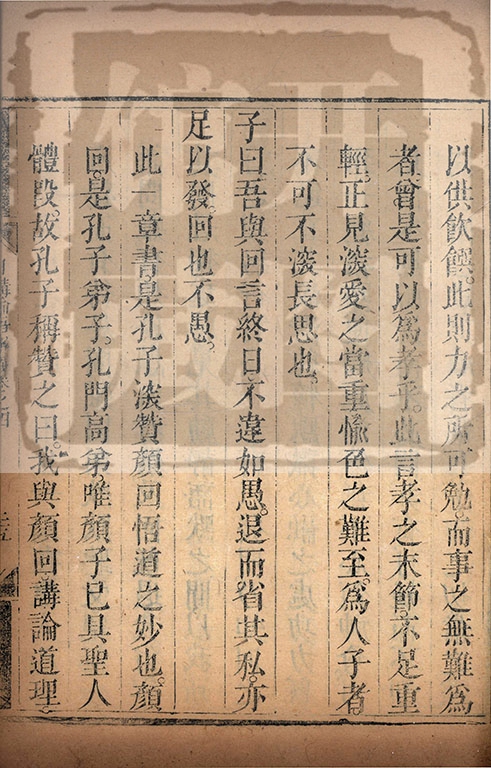 以供飲饌。此則力之所可勉。而事之無難為
者。曾是可以為孝乎。此言孝之末節。不足重
輕。正見深愛之當重愉色之難至。為人子者。
不可不深長思也。
子曰吾與回言終日不違如愚。退而省其私。亦
足以發。回也不愚。
此一章書是孔子深贊顏回悟道之妙也。顏
回。是孔子弟子。孔門高弟唯顏子已具聖人
體段。故孔子稱贊之曰。我與顏回講論道理。